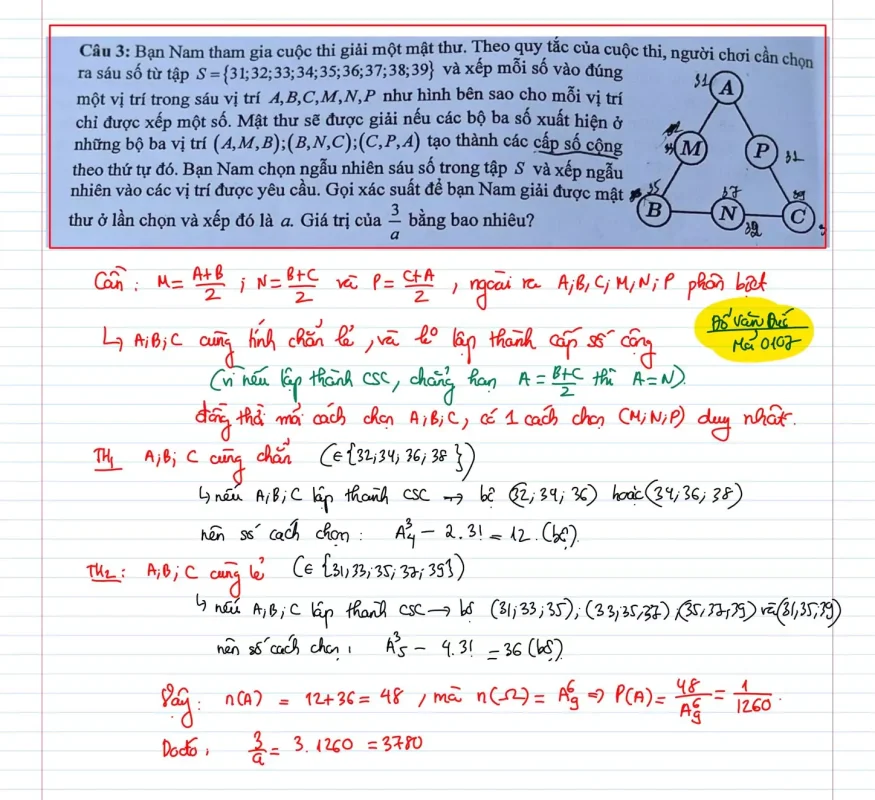 Câu 3: Bạn Nam tham gia cuộc thi giải một mật thư. Theo quy tắc của cuộc thi, người chơi cần chọn
ra sáu số từ tập S={31;32;33;34;35;36;37;38;39} và xếp mỗi số vào đúng
một vị trí trong sáu vị trí A,B,C,M,N,P như hình bên sao cho mỗi vị trí
chỉ được xếp một số. Mật thư sẽ được giải nếu các bộ ba số xuất hiện ở
những bộ ba vị trí (A,M,B);(B,N,C);(C,P,A) tạo thành các cấp số cộng
theo thứ tự đó. Bạn Nam chọn ngẫu nhiên sáu số trong tập S và xếp ngẫu
nhiên vào các vị trí được yêu cầu. Gọi xác suất để bạn Nam giải được mật
thư ở lần chọn và xếp đó là a. Giá trị của 3/a bằng bao nhiêu?
31 A
M P 31
35 B 37 N C
Cần: M = (A+B)/2 ; N = (B+C)/2 và P = (C+A)/2 , ngoài ra A;B,C;M,N;P phân biệt
↳ A;B;C cùng tính chẵn lẻ, và ko lập thành cấp số cộng
Đỗ Văn Đức
Mã 0107
(vì nếu lập thành CSC, chẳng hạn A = (B+C)/2 thì A=N)
đồng thời mỗi cách chọn A;B;C, có 1 cách chọn (M;N;P) duy nhất.
TH1 A;B; C cùng chẵn (∈{32;34; 36; 38})
↳ nếu A;B;C lập thành CSC → bộ (32; 34; 36) hoặc (34; 36; 38)
nên số cách chọn : A₄³ − 2.3! = 12 (bộ)
TH2 : A;B; C cùng lẻ (∈ {31,33;35; 37; 39})
↳ nếu A;B;C lập thành CSC → bộ (31;33;35); (33;35;37); (35,37,39) và (31,35,39)
nên số cách chọn : A₅³ − 4.3! = 36 (bộ)
Vậy: n(A) = 12+36 = 48 , mà n(Ω) = A₉⁶ ⇒ P(A) = 48/A₉⁶ = 1/1260 .
Do đó, 3/a = 3.1260 = 3780